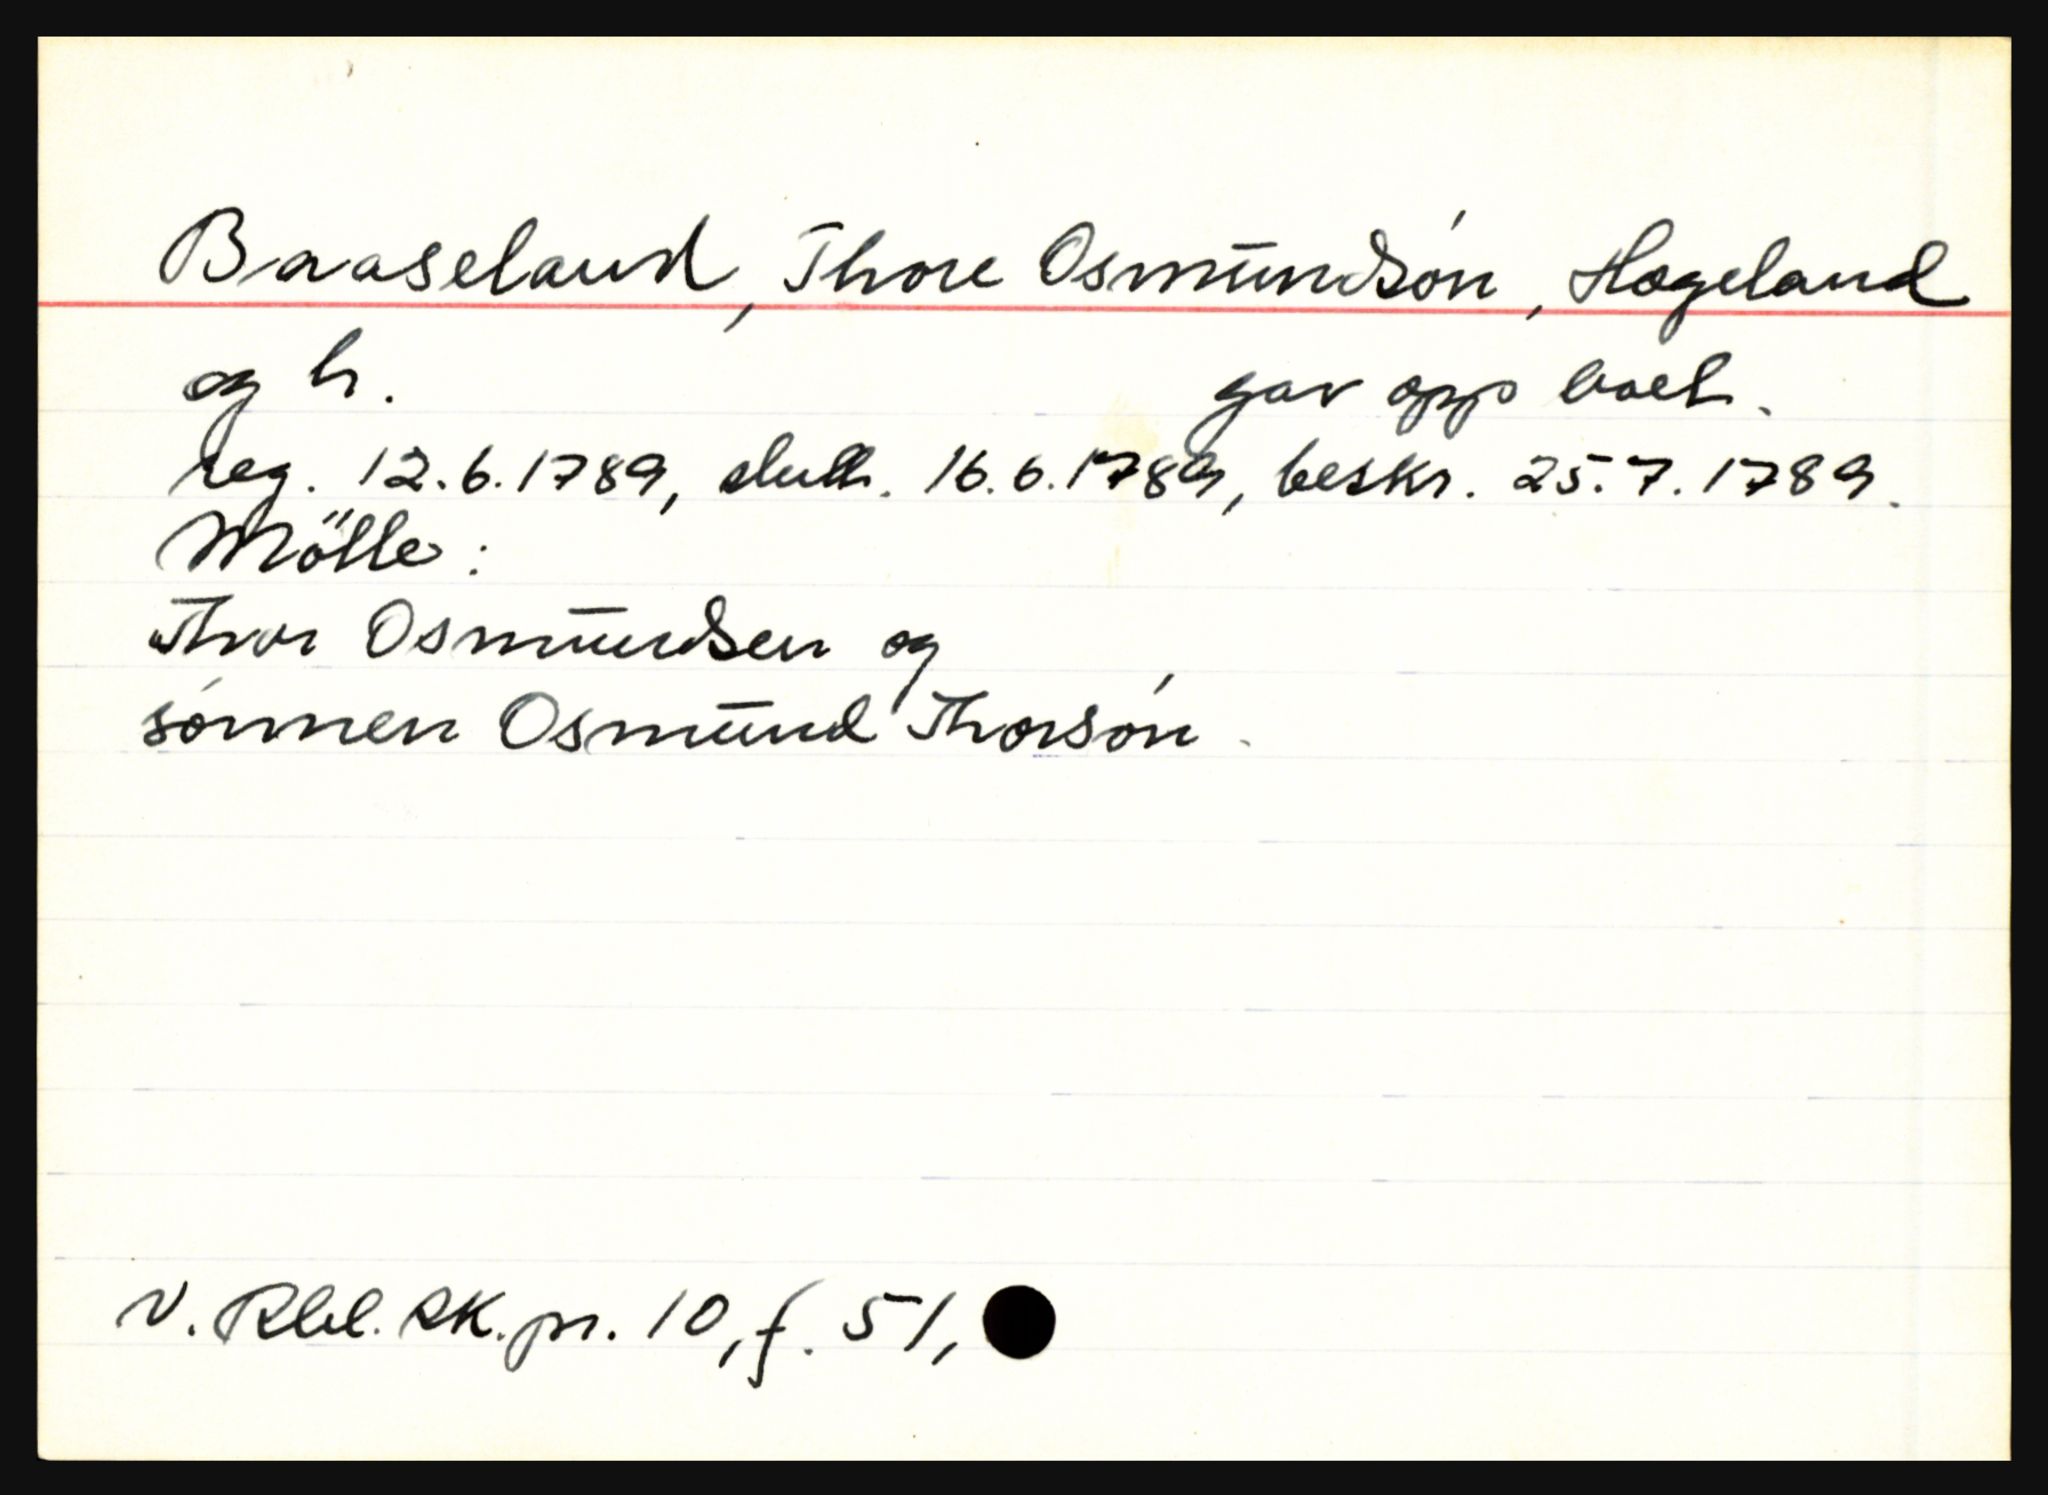 Baaseland, Thore Osmundsón, Hægeland
og h. gav opp boet.
reg. 12.6.1789, slutt. 16.6.1789, beskr. 25.7.1789.
Mötte:
Thor Osmundsen og
sónnen Osmund Thorsón.
V. Rbl. SK. pr. 10, f. 51,